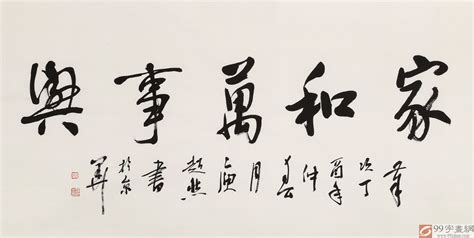 家和萬事興
次丁酉年仲春月書於京華
99字畫網